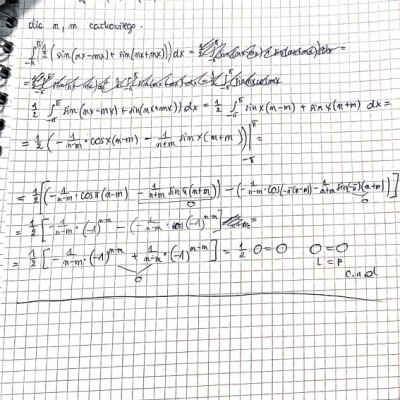 dla n, m całkowitego.
∫_{-π}^{π} 1/2 (sin(nx-mx) + sin(nx+mx)) dx = =
=
1/2 ∫_{-π}^{π} sin(nx-mx) + sin(nx+mx)) dx = 1/2 ∫_{-π}^{π} sin x(n-m) + sin x(n+m) dx =
= 1/2 (-1/(n-m) · cos x(n-m) - 1/(n+m) sin x(n+m)) |_{-π}^{π} =
= 1/2 [(-1/(n-m) · cos π(n-m) - 1/(n+m) sin π(n+m)) - (-1/(n-m) · cos(-π(n-m)) - 1/(n+m) sin(-π)(n+m))]
0 0
= 1/2 [-1/(n-m) · (-1)^{n-m} - (-1/(n-m) · (-1)^{n-m}] =
= 1/2 [-1/(n-m) · (-1)^{n-m} + 1/(n-m) · (-1)^{n-m}] = 1/2 · 0 = 0 0 = 0
0 L = P
c.n.d